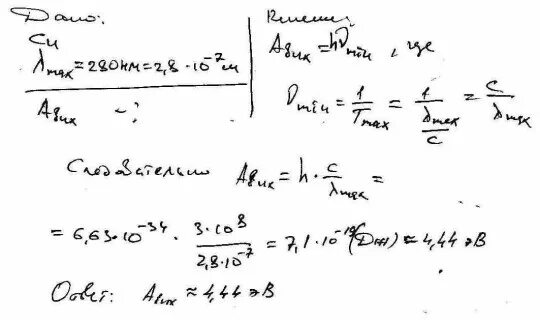 Дано:
Cu
λmax = 280 нм = 2,8 · 10⁻⁷ м
Aвых - ?
Решение:
Aвых = hνmin , где
νmin = 1/Tmax = 1/(λmax/c) = c/λmax
Следовательно Aвых = h · c/λmax =
= 6,63 · 10⁻³⁴ · 3 · 10⁸/2,8 · 10⁻⁷ = 7,1 · 10⁻¹⁹ (Дж) ≈ 4,44 эВ
Ответ: Aвых ≈ 4,44 эВ